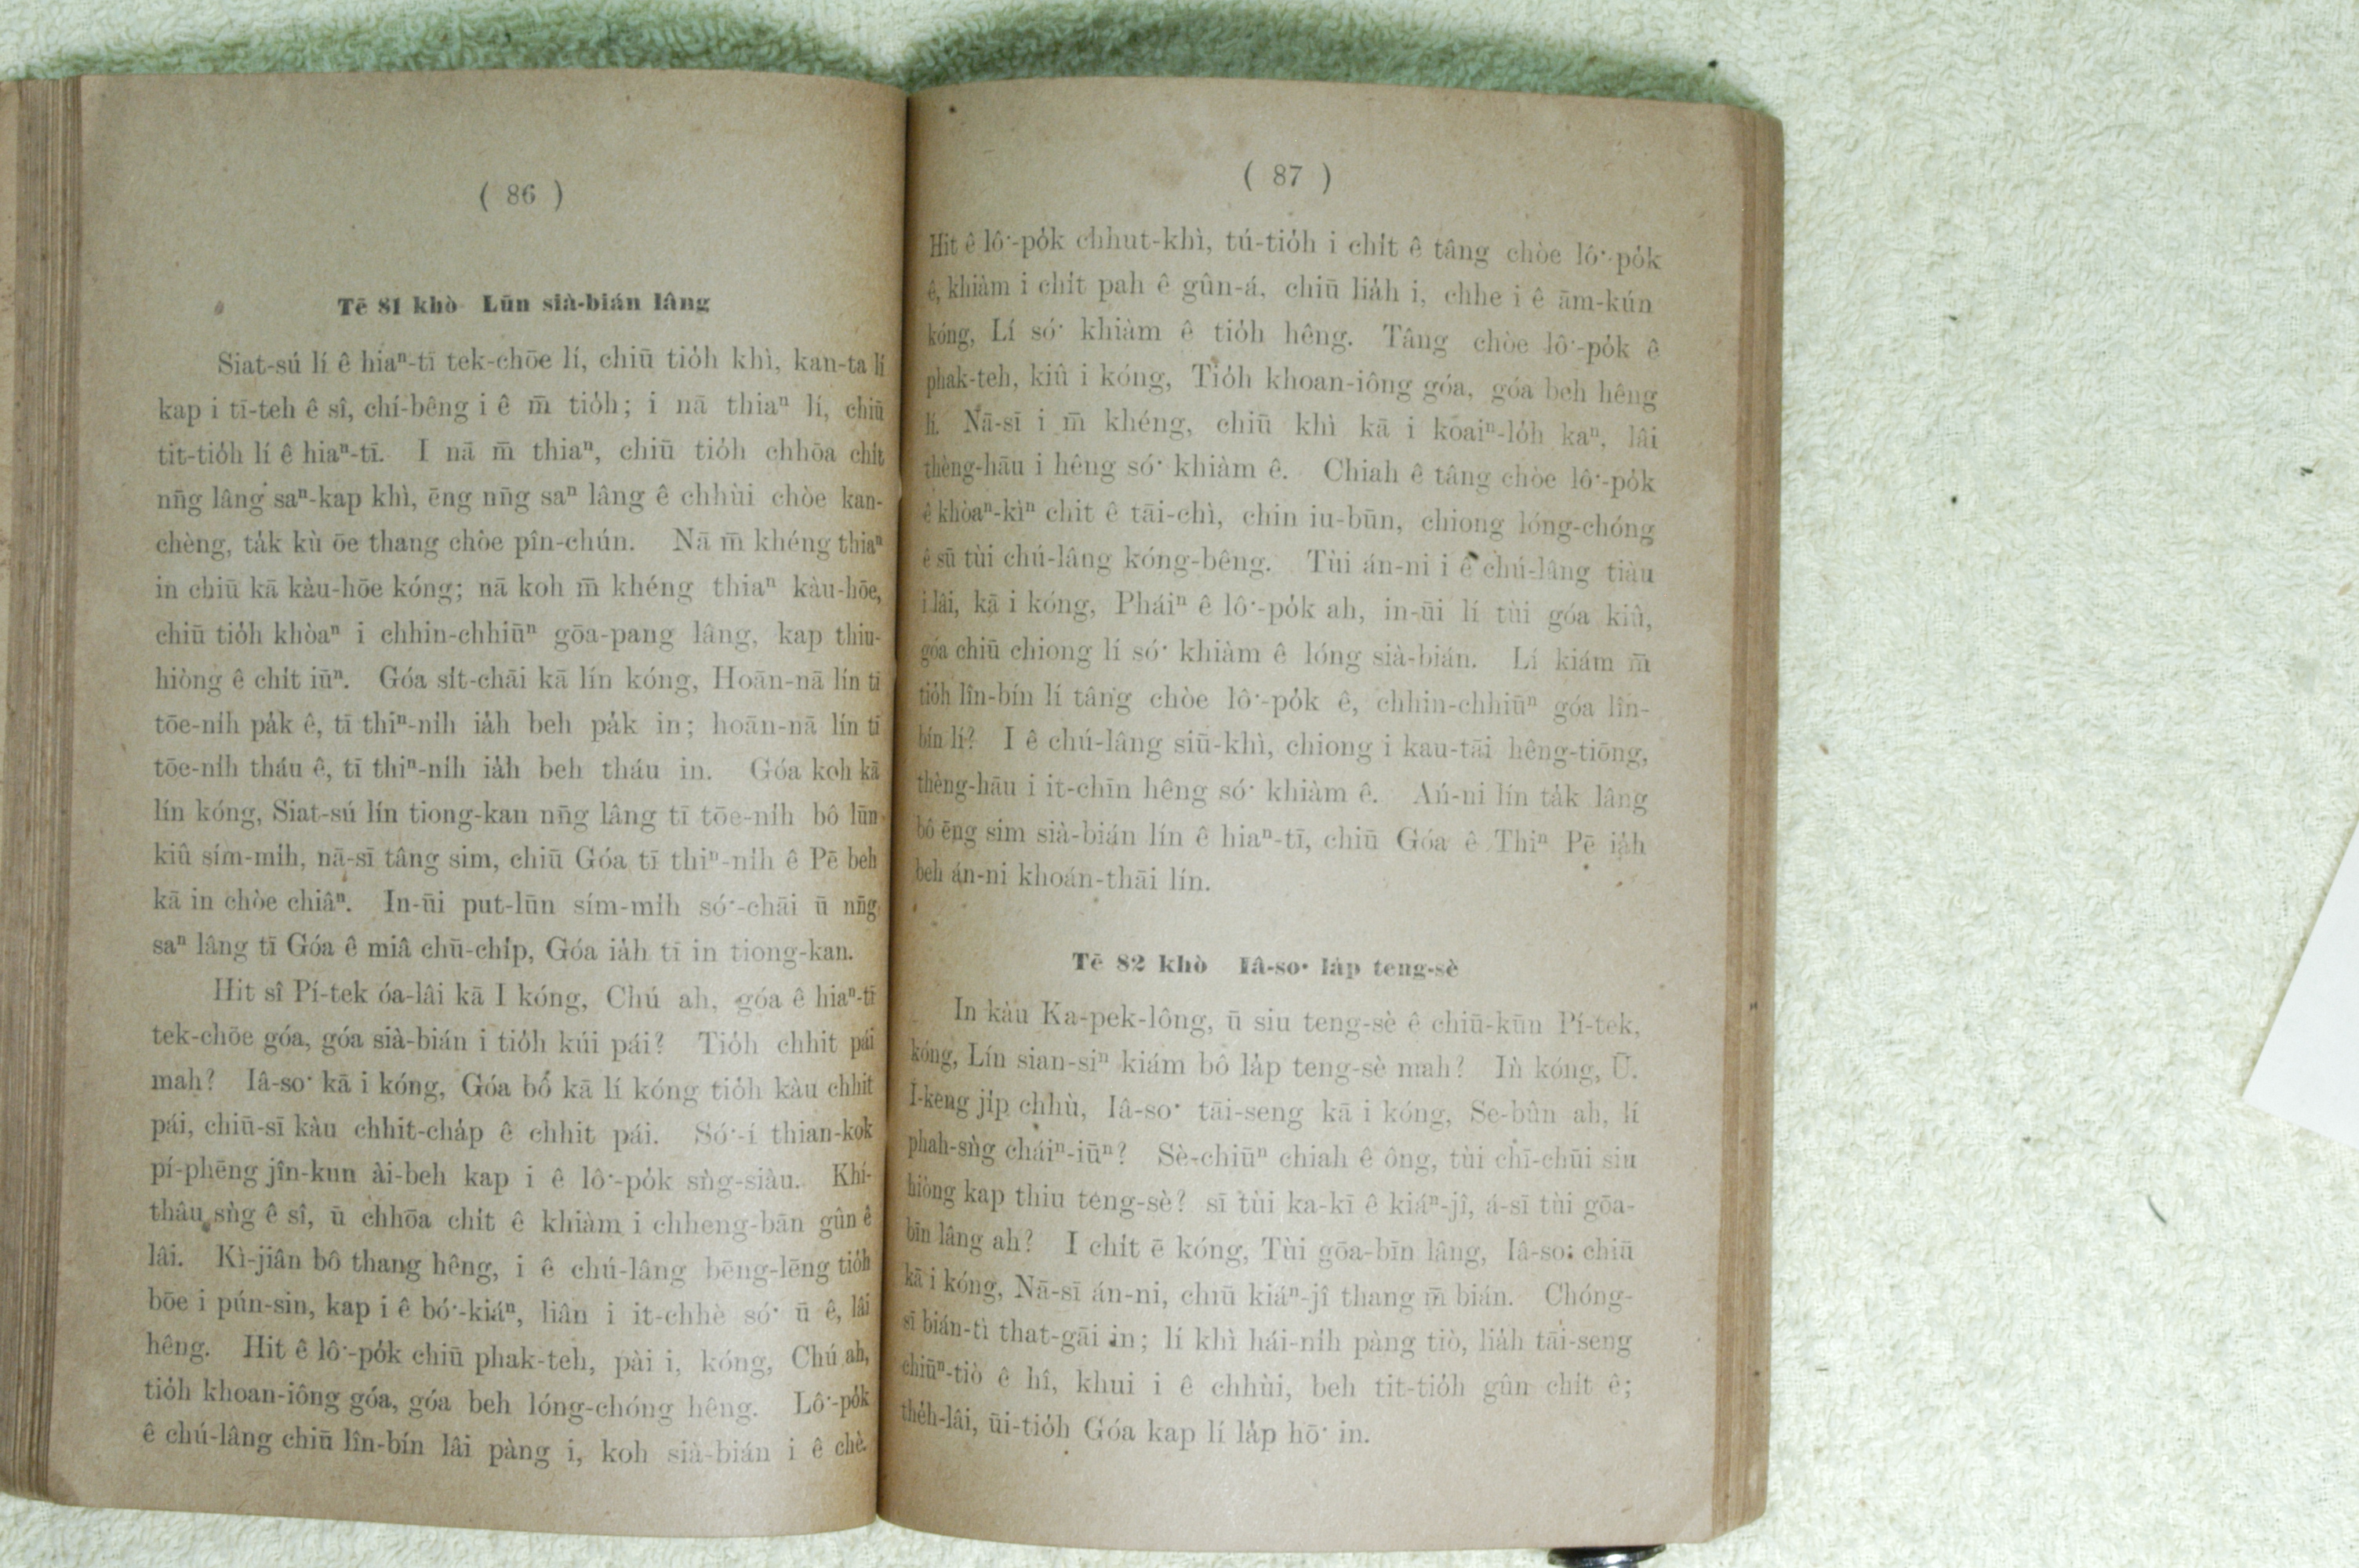 ( 86 )
Tē 81 khò Lūn sià-bián lâng
Siat-sú lí ê hiaⁿ-tī tek-chōe lí, chiū tio̍h khì, kan-ta lí
kap i tī-teh ê sî, chí-bêng i ê m̄ tio̍h; i nā thiaⁿ lí, chiū
tit-tio̍h lí ê hiaⁿ-tī. I nā m̄ thiaⁿ, chiū tio̍h chhōa chi̍t
nn̄g lâng saⁿ-kap khì, ēng nn̄g saⁿ lâng ê chhùi chòe kan-
chèng, ta̍k kù ōe thang chòe pîn-chún. Nā m̄ khéng thiaⁿ
in chiū kā kàu-hōe kóng; nā koh m̄ khéng thiaⁿ kàu-hōe,
chiū tio̍h khòaⁿ i chhin-chhiūⁿ gōa-pang lâng, kap thiu-
hiòng ê chi̍t iūⁿ. Góa si̍t-chāi kā lín kóng, Hoān-nā lín tī
tōe-ni̍h pa̍k ê, tī thiⁿ-ni̍h ia̍h beh pa̍k in; hoān-nā lín tī
tōe-ni̍h tháu ê, tī thiⁿ-ni̍h ia̍h beh tháu in. Góa koh kā
lín kóng, Siat-sú lín tiong-kan nn̄g lâng tī tōe-ni̍h bô lūn
kiû sím-mi̍h, nā-sī tâng sim, chiū Góa tī thiⁿ-ni̍h ê Pē beh
kā in chòe chiâⁿ. In-ūi put-lūn sím-mi̍h só͘-chāi ū nn̄g
saⁿ lâng tī Góa ê miâ chū-chi̍p, Góa ia̍h tī in tiong-kan.
Hit sî Pí-tek óa-lâi kā I kóng, Chú ah, góa ê hiaⁿ-tī
tek-chōe góa, góa sià-bián i tio̍h kúi pái? Tio̍h chhit pái
mah? Iâ-so͘ kā i kóng, Góa bô kā lí kóng tio̍h kàu chhit
pái, chiū-sī kàu chhit-cha̍p ê chhit pái. Só͘-í thian-kok
pí-phēng jîn-kun ài-beh kap i ê lô͘-po̍k sǹg-siàu. Khí-
thâu sǹg ê sî, ū chhōa chi̍t ê khiàm i chheng-bān gûn ê
lâi. Kì-jiân bô thang hêng, i ê chú-lâng bēng-lēng tio̍h
bōe i pún-sin, kap i ê bó͘-kiáⁿ, liân i it-chhè só͘ ū ê, lâi
hêng. Hit ê lô͘-po̍k chiū phak-teh, pài i, kóng, Chú ah,
tio̍h khoan-iông góa, góa beh lóng-chóng hêng. Lô͘-po̍k
ê chú-lâng chiū lîn-bín lâi pàng i, koh sià-bián i ê chè.
( 87 )
Hit ê lô͘-po̍k chhut-khì, tú-tio̍h i chi̍t ê tâng chòe lô͘-po̍k
ê, khiàm i chi̍t pah ê gûn-á, chiū lia̍h i, chhe i ê ām-kún
kóng, Lí só͘ khiàm ê tio̍h hêng. Tâng chòe lô͘-po̍k ê
phak-teh, kiû i kóng, Tio̍h khoan-iông góa, góa beh hêng
lí. Nā-sī i m̄ khéng, chiū khì kā i koaiⁿ-lo̍h kaⁿ, lâi
thèng-hāu i hêng só͘ khiàm ê. Chiah ê tâng chòe lô͘-po̍k
ê khòaⁿ-kìⁿ chit ê tāi-chì, chin iu-būn, chiong lóng-chóng
ê sū tùi chú-lâng kóng-bêng. Tùi án-ni i ê chú-lâng tiàu
i lâi, kā i kóng, Pháiⁿ ê lô͘-po̍k ah, in-ūi lí tùi góa kiû,
góa chiū chiong lí só͘ khiàm ê lóng sià-bián. Lí kiám m̄
tio̍h lîn-bín lí tâng chòe lô͘-po̍k ê, chhin-chhiūⁿ góa lîn-
bín lí? I ê chú-lâng siū-khì, chiong i kau-tāi hêng-tiōng,
thèng-hāu i it-chīn hêng só͘ khiàm ê. Ań-ni lín ta̍k lâng
bô ēng sim sià-bián lín ê hiaⁿ-tī, chiū Góa ê Thiⁿ Pē ia̍h
beh án-ni khoán-thāi lín.
Tē 82 khò Iâ-so͘ la̍p teng-sè
In kàu Ka-pek-lông, ū siu teng-sè ê chiū-kūn Pí-tek,
kóng, Lín sian-siⁿ kiám bô la̍p teng-sè mah? Iǹ kóng, Ū.
Í-keng ji̍p chhù, Iâ-so͘ tāi-seng kā i kóng, Se-bûn ah, lí
phah-sǹg cháiⁿ-iūⁿ? Sè-chiūⁿ chiah ê ông, tùi chī-chūi siu
hiòng kap thiu teng-sè? sī tùi ka-kī ê kiáⁿ-jî, á-sī tùi gōa-
bīn lâng ah? I chi̍t ē kóng, Tùi gōa-bīn lâng, Iâ-so͘ chiū
kā i kóng, Nā-sī án-ni, chiū kiáⁿ-jî thang m̄ bián. Chóng-
sī bián-tì that-gāi in; lí khì hái-ni̍h pàng tiò, lia̍h tāi-seng
chiūⁿ-tiò ê hî, khui i ê chhùi, beh tit-tio̍h gûn chi̍t ê;
the̍h-lâi, ūi-tio̍h Góa kap lí la̍p hō͘ in.